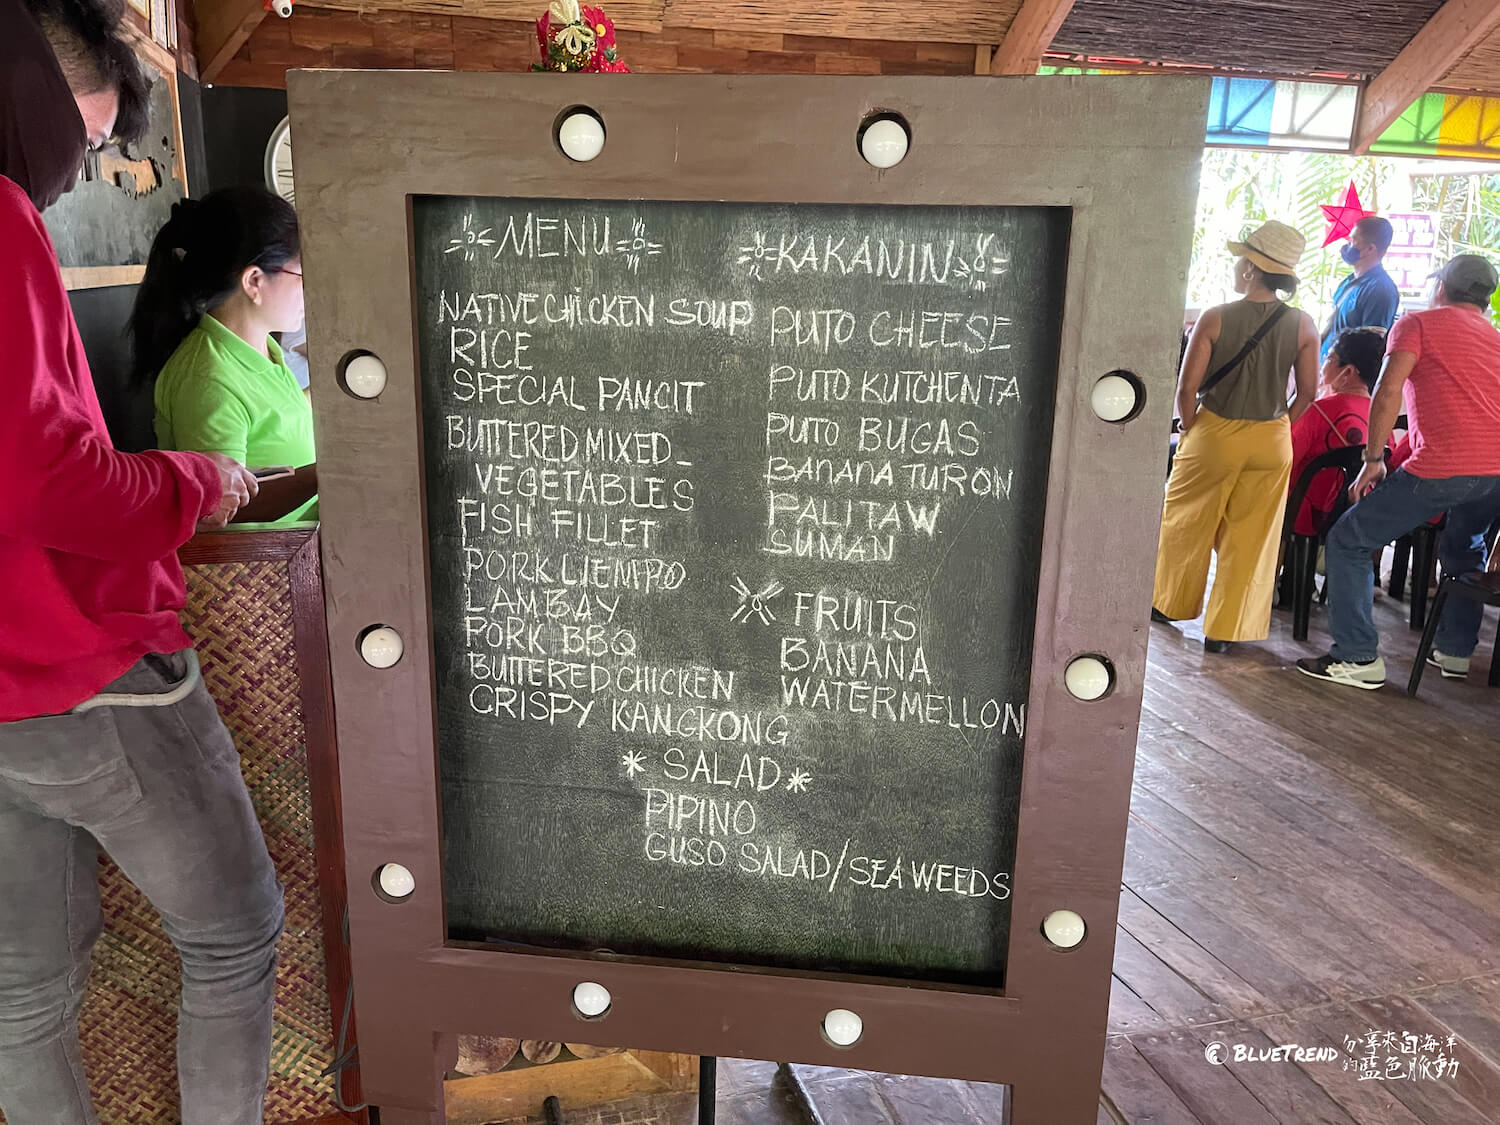 MENU
NATIVE CHICKEN SOUP
RICE
SPECIAL PANCIT
BUTTERED MIXED_
VEGETABLES
FISH FILLET
PORK LIEMPO
LAMBAY
PORK BBQ
BUTTERED CHICKEN
CRISPY KANGKONG
KAKANIN
PUTO CHEESE
PUTO KUTCHENTA
PUTO BUGAS
BANANA TURON
PALITAW
SUMAN
FRUITS
BANANA
WATERMELLON
* SALAD *
PIPINO
GUSO SALAD/SEAWEEDS
BLUETREND
分享來自海洋
的藍色脈動